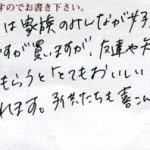 すのでお書き下さい。
は家族のみんなが好
ですが買いますが、友達や知
もらうと「とてもおいしい
れます。子供たちも喜こん